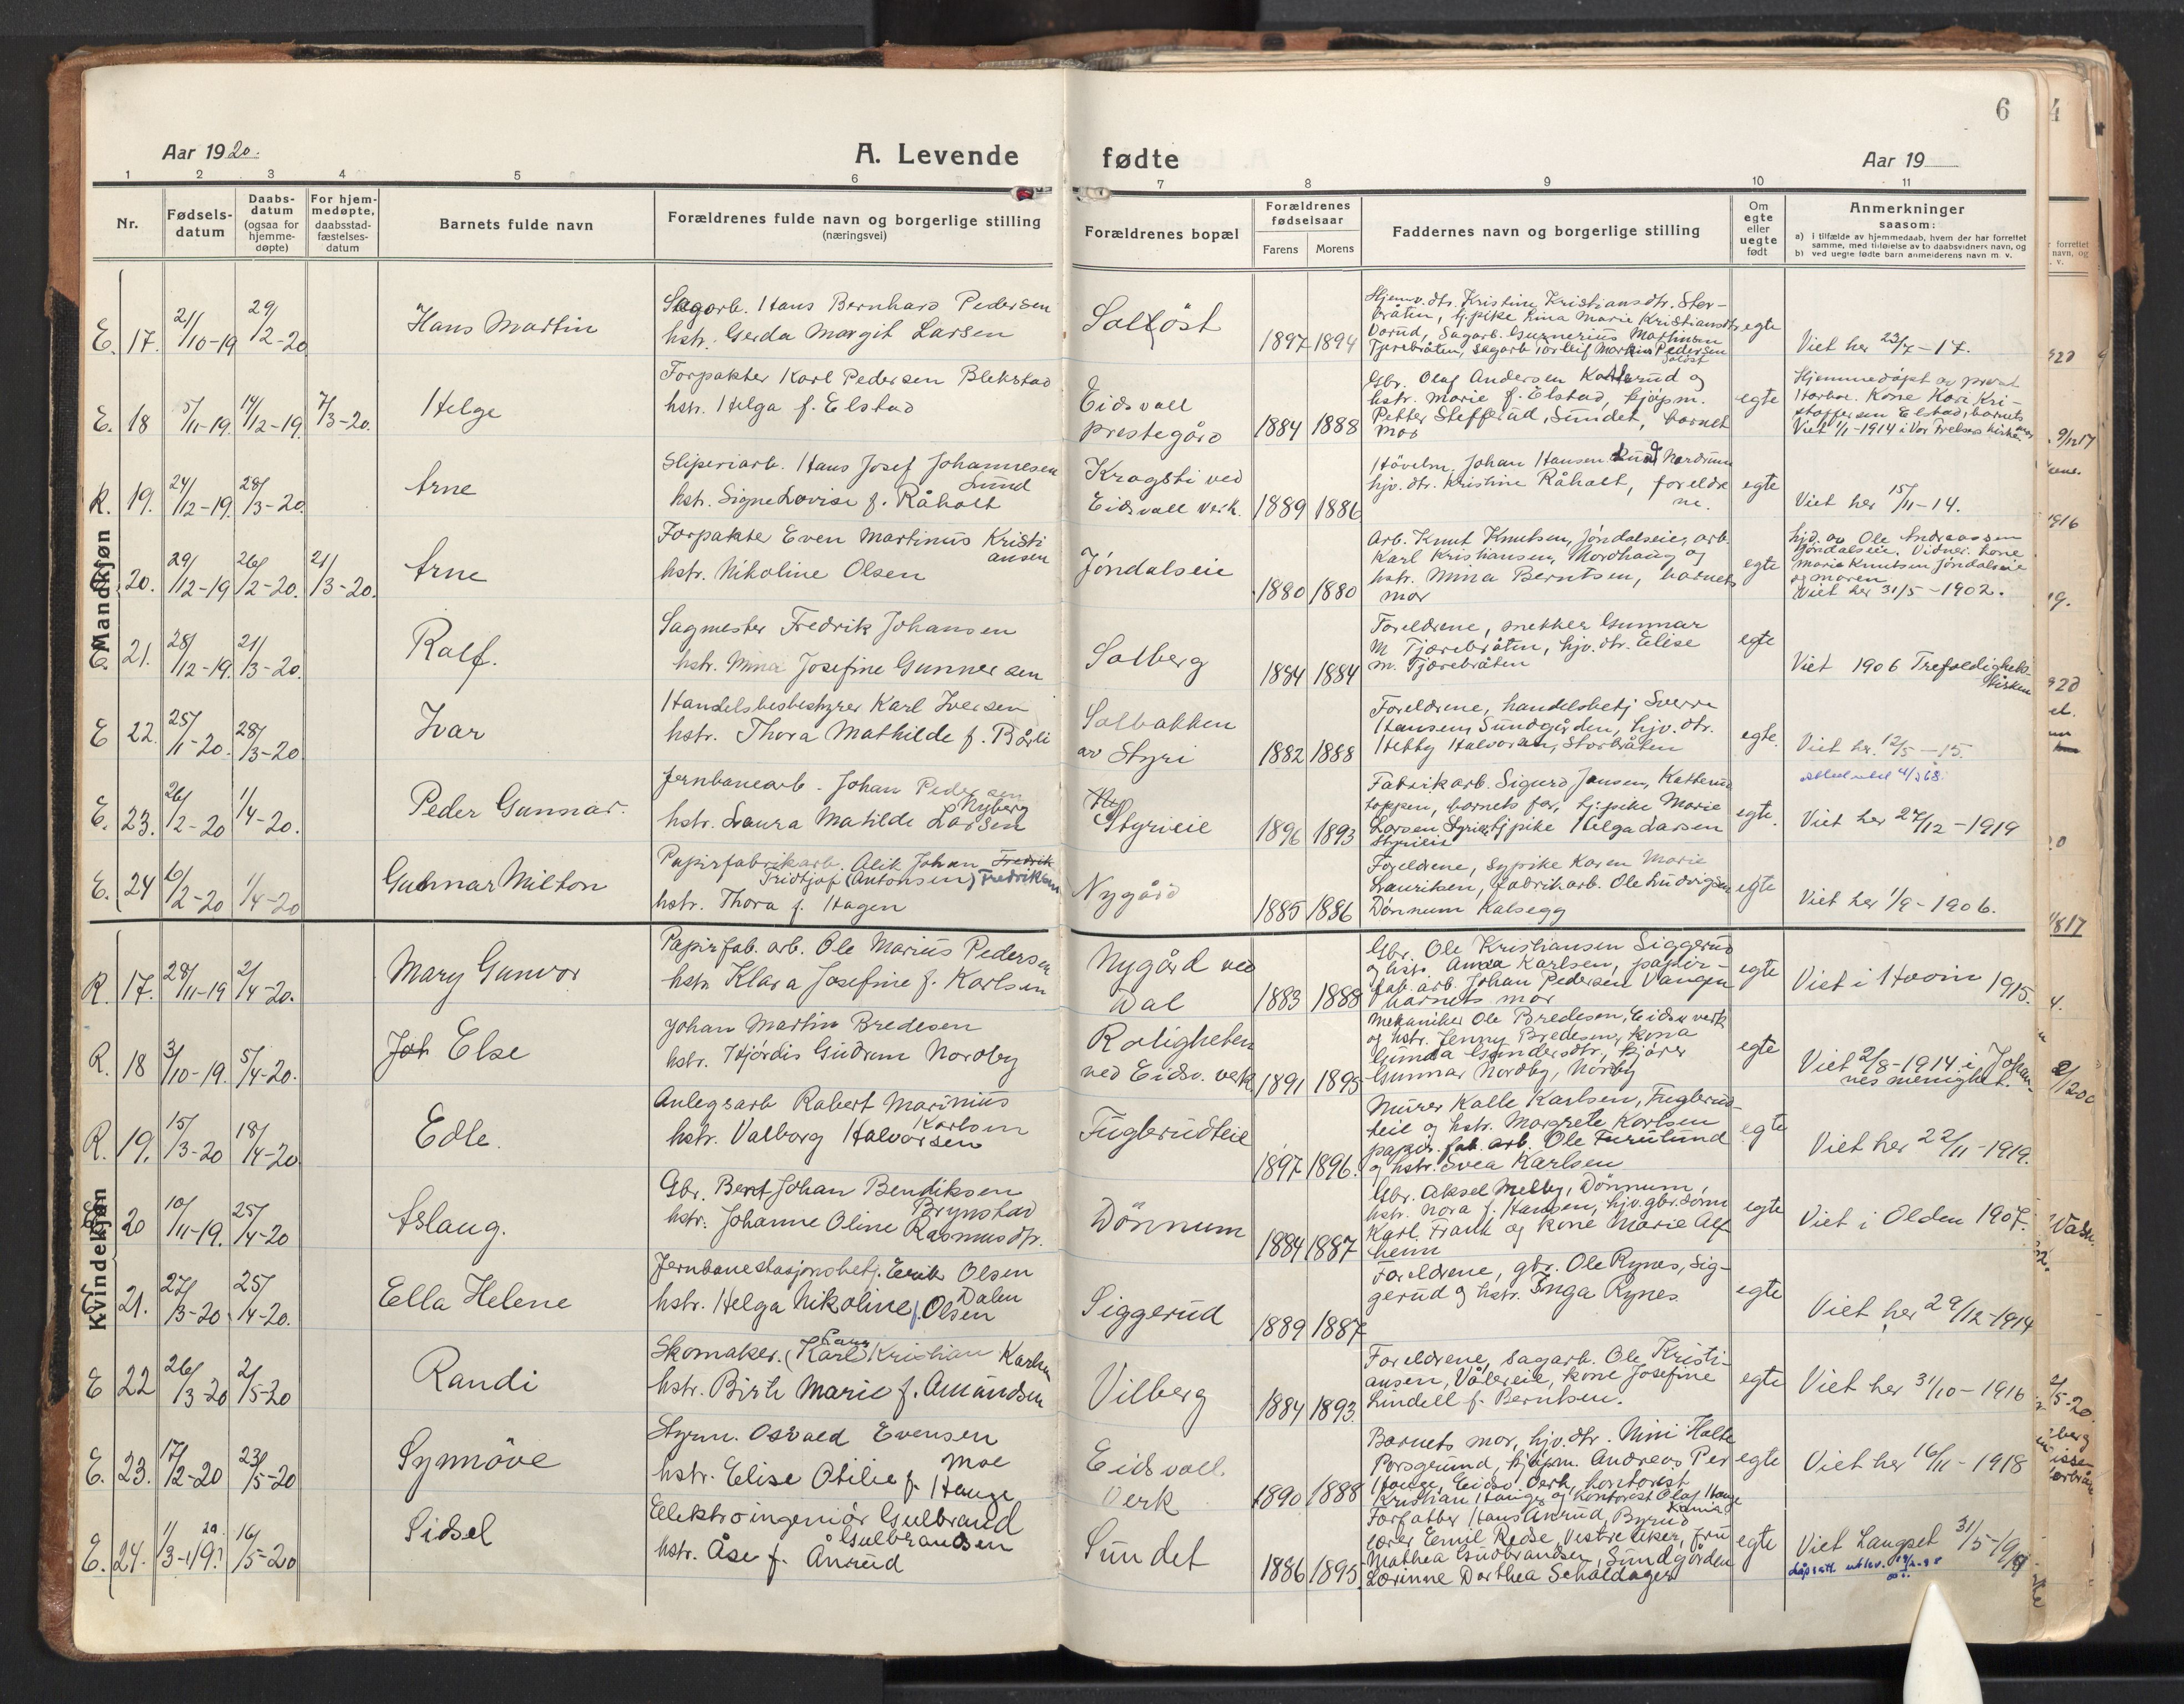 6
Aar 1920.
A. Levende fødte
Aar 19
1 2 3 4 5 6 7 8 9 10 11
Nr.
Fødsels-
datum
Daabs-
datum
(ogsaa for
hjemme-
døpte)
For hjem-
medøpte,
daabsstad-
fæstelses-
datum
Barnets fulde navn
Forældrenes fulde navn og borgerlige stilling
(næringsvei)
Forældrenes bopæl
Forældrenes
fødselsaar
Farens Morens
Faddernes navn og borgerlige stilling
Om
egte
eller
uegte
født
Anmerkninger
saasom:
a) i tilfælde av hjemmedaab, hvem der har forrettet
samme, med tilføielse av to daabsvidners navn, og
b) ved uegte fødte barn anmelderens navn m. v.
Mandkjøn
E. 17. 21/10-19 29/2-20 Hans Martin
Sagarb. Hans Bernhard Pedersen
hstr. Gerda Margit Larsen
Solløst
1897 1894
Hjemv. dtr. Kristine Kristiansdtr. Stor-
bråten, tj.pike Lina Marie Kristiansdtr
Tjærebråten, sagarb. Torleif Markus Pedersen
Soløst
egte
Viet her 23/7-17.
E. 18 5/11-19. 14/12-19. 7/3-20. Helge
Forpakter Karl Pedersen Blekstad
hstr. Helga f. Elstad
Eidsvall
prestegård
1884 1888
Gbr. Olaf Andersen Katterud og
hstr. Marie f. Elstad, kjøpm.
Petter Stefferud, Sundet, barnets
mor
egte
Hjemmedøpt av prest
Horbor. Kone Kari Kri-
stoffersen Elstad, barnets mor
Viet 1/1-1914 i Vor Frelsers kirke
R. 19. 24/12-19. 28/3-20. Arne
Sliperiarb. Hans Josef Johannesen
Lund
hstr. Signe Lovise f. Råholt
Krogsti ved
Eidsvall verk.
1889 1886
Høvelm. Johan Hansen Lund Nordrum
hjv. dtr. Kristine Råholt, foreldre
ne.
egte
Viet her 15/11-14.
E. 20. 29/12-19 26/2-20. 21/3-20. Arne
Forpakter Even Martinus Kristi
ansen
hstr. Nikoline Olsen
Jøndalseie
1880 1880
Arb. Knut Knutsen, Jøndalseie, arb.
Karl Kristiansen, Nordhaug og
hstr. Mina Berntsen, barnets
mor
egte
hjd. av Ole Andreassen
Jøndalseie. Vidner: kone
Marie Knutsen Jøndalseie
og moren
Viet her 31/5-1902.
E. 21. 28/12-19. 21/3-20. Ralf.
Sagmester Fredrik Johansen
hstr. Mina Josefine Gunnersen
Solberg
1884 1884
Foreldrene, snekker Gunnar
M Tjærebråten, hjv. dtr. Elise
M. Tjærebråten
egte
Viet 1906 Trefoldigheds-
kirken
E 22. 25/1-20. 28/3-20 Ivar
Handelsbestyrer Karl Iversen
hstr. Thora Mathilde f. Bårli
Solbakken
av Styri
1882 1888
Foreldrene, handelsbetj Sverre
Hansen, Sundgården, hjv. dtr.
Hetty Halvorsen, Storbråten
egte.
Viet her. 12/5-15.
E. 23. 26/2-20 1/4-20. Peder Gunnar.
Jernbanearb. Johan Pedersen
Nyberg
hstr. Laura Matilde Larsen
Styrieie
1896 1893
Fabrikarb. Sigurd Jansen, Katterud
toppen, barnets far, tj.pike Marie
Larsen Styrieie tj.pike Helga Larsen
Styrieie
egte.
Viet her 27/12-1919
E. 24 6/2-20 1/4-20 Gunnar Milton
Papirfabrikarb. Alik Johan Fredrik
Fridtjof (Antonsen) Fredriksen
hstr. Thora f. Hagen
Nygård
1885 1886
Foreldrene, sypike Karen Marie
Lauritsen, fabrikarb. Ole Ludvigsen
Dønnum Kalsegg
egte
Viet her 1/9-1906.
Kvindekjøn
R. 17. 28/11-19 2/4-20. Mary Gunvor
Papirfab. arb. Ole Marius Pedersen
hstr. Klara Josefine f. Karlsen
Nygård ved
Dal
1883 1888
Gbr. Ole Kristiansen Siggerud
og hstr. Anna Karlsen, papir-
fab. arb. Johan Pedersen Vangen
barnets mor
egte
Viet i Hovin 1915.
R. 18 3/10-19. 5/4-20. Joh Else
Johan Martin Bredesen
hstr. Hjørdis Gudrun Nordby
Roligheten
ved Eidsv. verk
1891 1895
Mekaniker Ole Bredesen, Eidsv verk
og hstr. Jenny Bredesen, kona
Gunda Gundersdtr, kjører
Gunnar Nordby, Nordby
egte
Viet 2/8-1914 i Johan-
nes menighet.
R. 19. 15/3-20 18/4-20. Edle.
Anlegsarb Robert Marinius
Karlsen
hstr. Valborg Halvorsen
Fuglerudteie
1897 1896.
Murer Kalle Karlsen, Fuglerud-
teie og hstr. Margrete Karlsen
papir. fab. arb. Ole Furulund
og hstr. Svea Karlsen
egte
Viet her 22/11-1919.
E 20 10/11-19. 25/4-20 Aslaug.
Gbr. Bert Johan Bendiksen
Brynstad
hstr. Johanne Oline Rasmusdtr.
Dønnum
1884 1887
Gbr. Aksel Melby, Dønnum,
hstr. Nora f. Hansen, hjv. gbr. sønn
Karl. Frank og kone Marie Alf
heim
egte
Viet i Olden 1907.
E 21. 27/3-20 25/4-20. Ella Helene
Jernbanestasjonsbetj. Eerik Olsen
Dalen
hstr. Helga Nikoline f. Olsen
Siggerud
1889 1887
Foreldrene, gbr. Ole Rynes, Sig-
gerud og hstr. Inga Rynes
egte
Viet her 29/12-1914
E 22 26/3-20 2/5-20 Randi
Skomaker. (Karl) Kristian Karlsen
hstr. Birte Marie f. Amundsen
Vilberg
1884 1893.
Foreldrene, sagarb. Ole Kristi-
ansen, Vålereie, kone Josefine
Lindell f. Berntsen.
egte
Viet her 31/10-1916
E. 23. 17/2-20 23/5-20 Synnöve
Styrm. Osvald Evensen
Moe
hstr. Elise Otilie f. Hauge
Eidsvoll
Verk
1890 1888
Barnets mor, hjv. dtr. Mini Holte
Porsgrund, kjøpm. Andreas Per
Hauge, Eidsv. Verk, kontorist
Kristian Hauge og kontorist Olaf Hauge
egte
Viet her 16/11-1918
E. 24. 1/3-19! 20. 16/5-20 Sidsel
Elektroingeniør Gulbrand
Gulbrandsen
hstr. Åse f. Anrud
Sundet
1886 1895.
Forfatter Hans Anrud, Byrud
lærer Emil Redse, Vestre Aker, fru
Mathea Gudbrandsen, Sundgården
Lærinne Dorthea Schaldager
egte
Viet Langset 31/5-1919